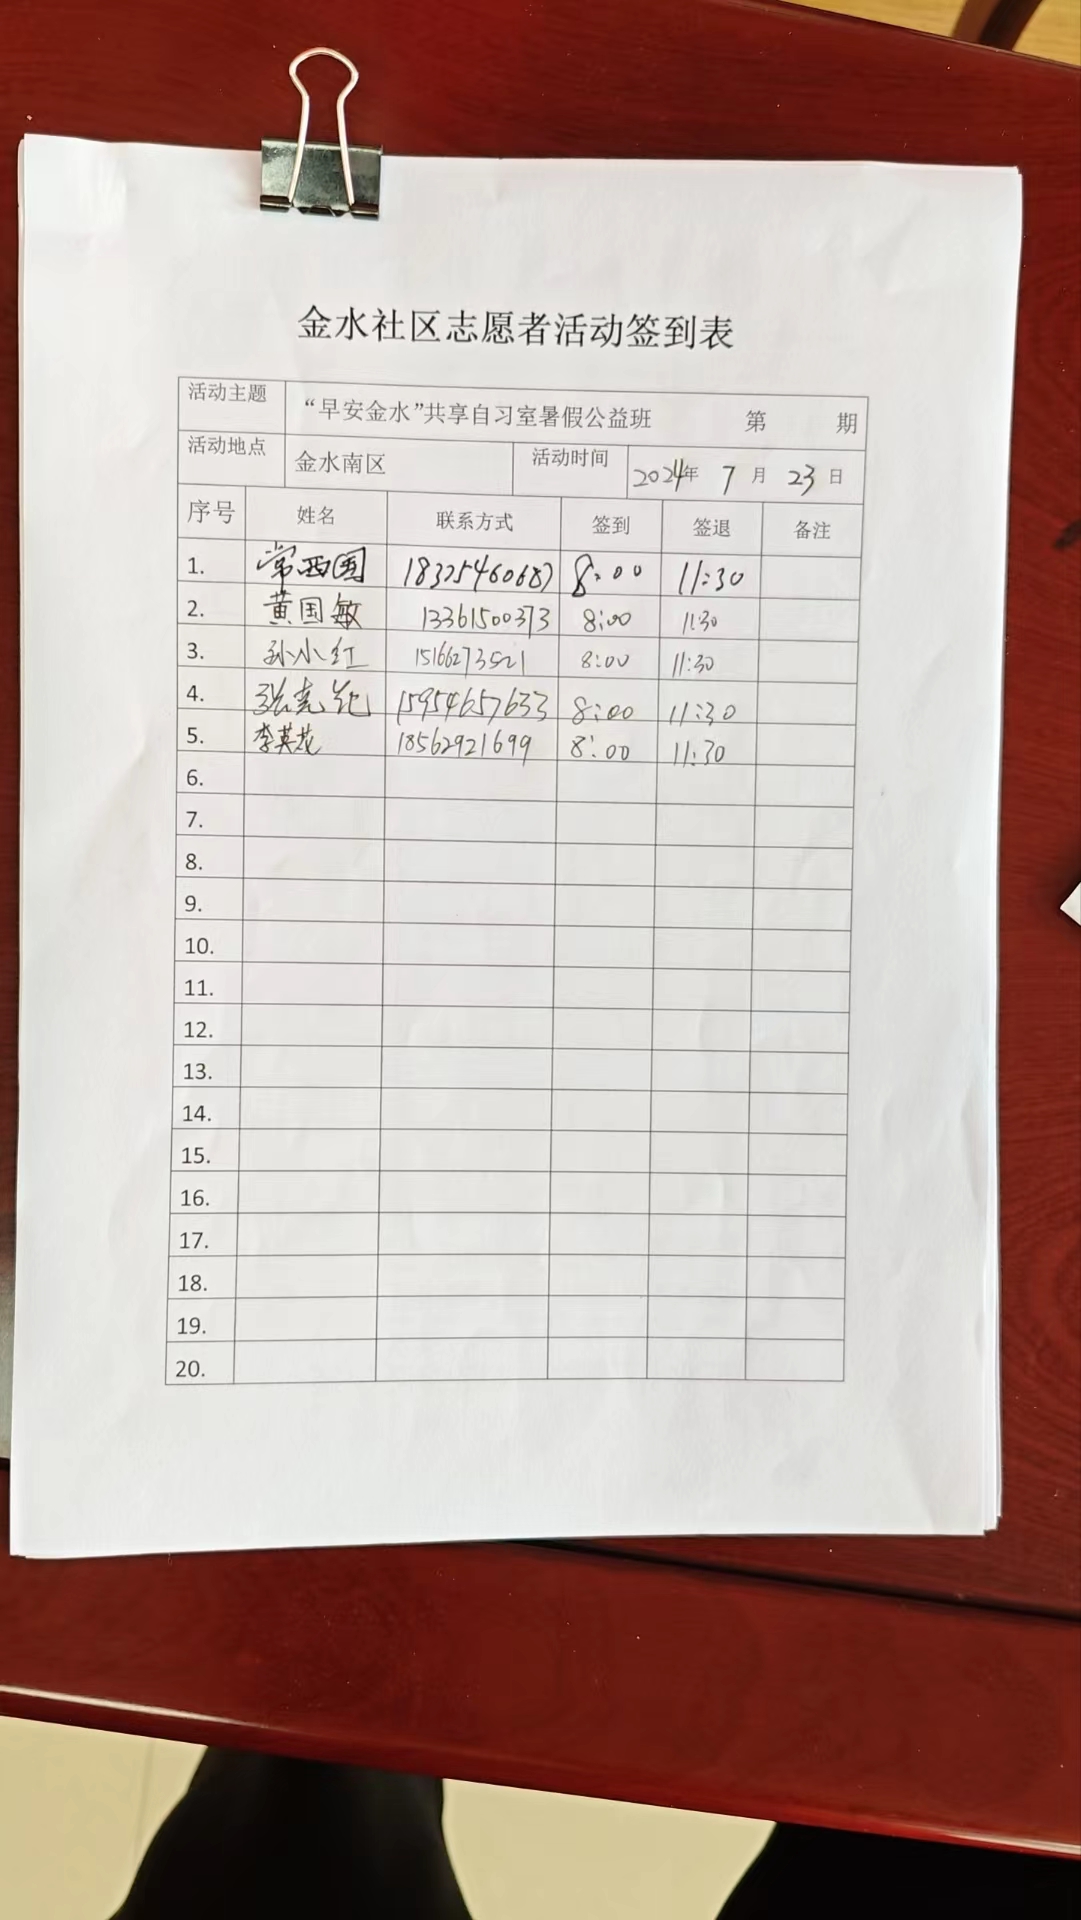 金水社区志愿者活动签到表
活动主题 “早安金水”共享自习室暑假公益班 第 期
活动地点 金水南区 活动时间 2024年 7 月 23 日
序号 姓名 联系方式 签到 签退 备注
1. 常西国 18325460687 8:00 11:30
2. 黄国敏 13361500373 8:00 11:30
3. 孙小红 15166273521 8:00 11:30
4. 15954657633 8:00 11:30
5. 李英花 18562921699 8:00 11:30
6.
7.
8.
9.
10.
11.
12.
13.
14.
15.
16.
17.
18.
19.
20.